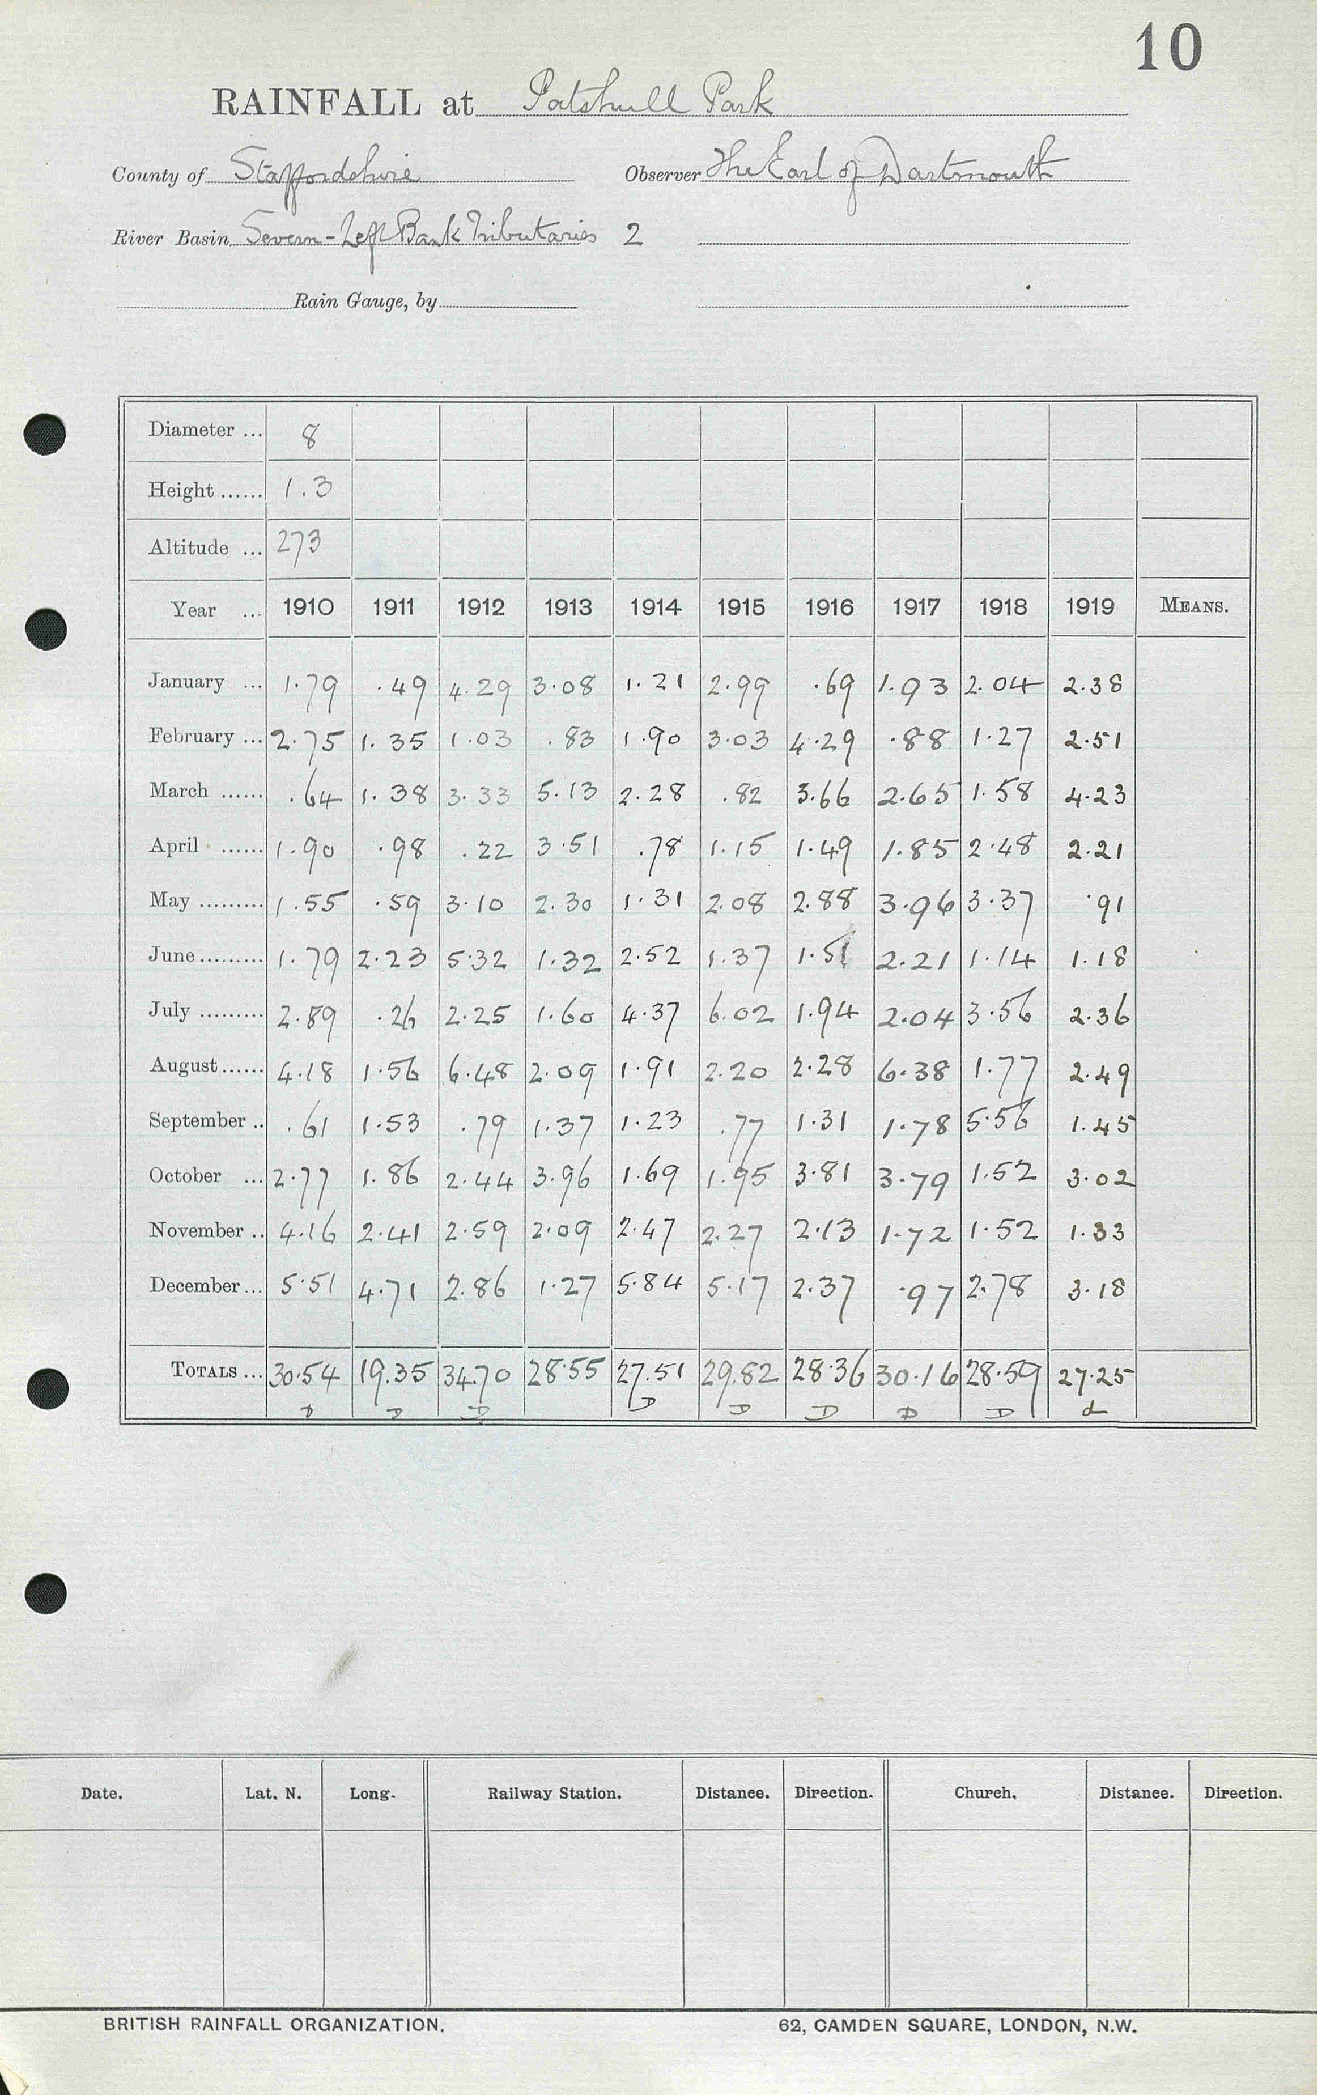 10
RAINFALL at Patshull Park
County of Staffordshire Observer The Earl of Dartmouth
River Basin Severn - Left Bank Tributaries 2
Rain Gauge, by
Diameter ... 8
Height ...... 1.3
Altitude ... 273
Year ... 1910 1911 1912 1913 1914 1915 1916 1917 1918 1919 MEANS.
January ... 1.79 .49 4.29 3.08 1.21 2.99 .69 1.93 2.04 2.38
February ... 2.75 1.35 1.03 .83 1.90 3.03 4.29 .88 1.27 2.51
March ...... .64 1.38 3.33 5.13 2.28 .82 3.66 2.65 1.58 4.23
April ...... 1.90 .98 .22 3.51 .78 1.15 1.49 1.85 2.48 2.21
May ......... 1.55 .59 3.10 2.30 1.31 2.08 2.88 3.96 3.37 .91
June ......... 1.79 2.23 5.32 1.32 2.52 1.37 1.51 2.21 1.14 1.18
July ......... 2.89 .26 2.25 1.60 4.37 6.02 1.94 2.04 3.56 2.36
August ...... 4.18 1.56 6.48 2.09 1.91 2.20 2.28 6.38 1.77 2.49
September .. .61 1.53 .79 1.37 1.23 .77 1.31 1.78 5.56 1.45
October ... 2.77 1.86 2.44 3.96 1.69 1.95 3.81 3.79 1.52 3.02
November .. 4.16 2.41 2.59 2.09 2.47 2.27 2.13 1.72 1.52 1.33
December ... 5.51 4.71 2.86 1.27 5.84 5.17 2.37 .97 2.78 3.18
TOTALS ... 30.54 19.35 34.70 28.55 27.51 29.82 28.36 30.16 28.59 27.25
D D D D D D D D d
Date. Lat. N. Long. Railway Station. Distance. Direction. Church. Distance. Direction.
BRITISH RAINFALL ORGANIZATION. 62, CAMDEN SQUARE, LONDON, N.W.